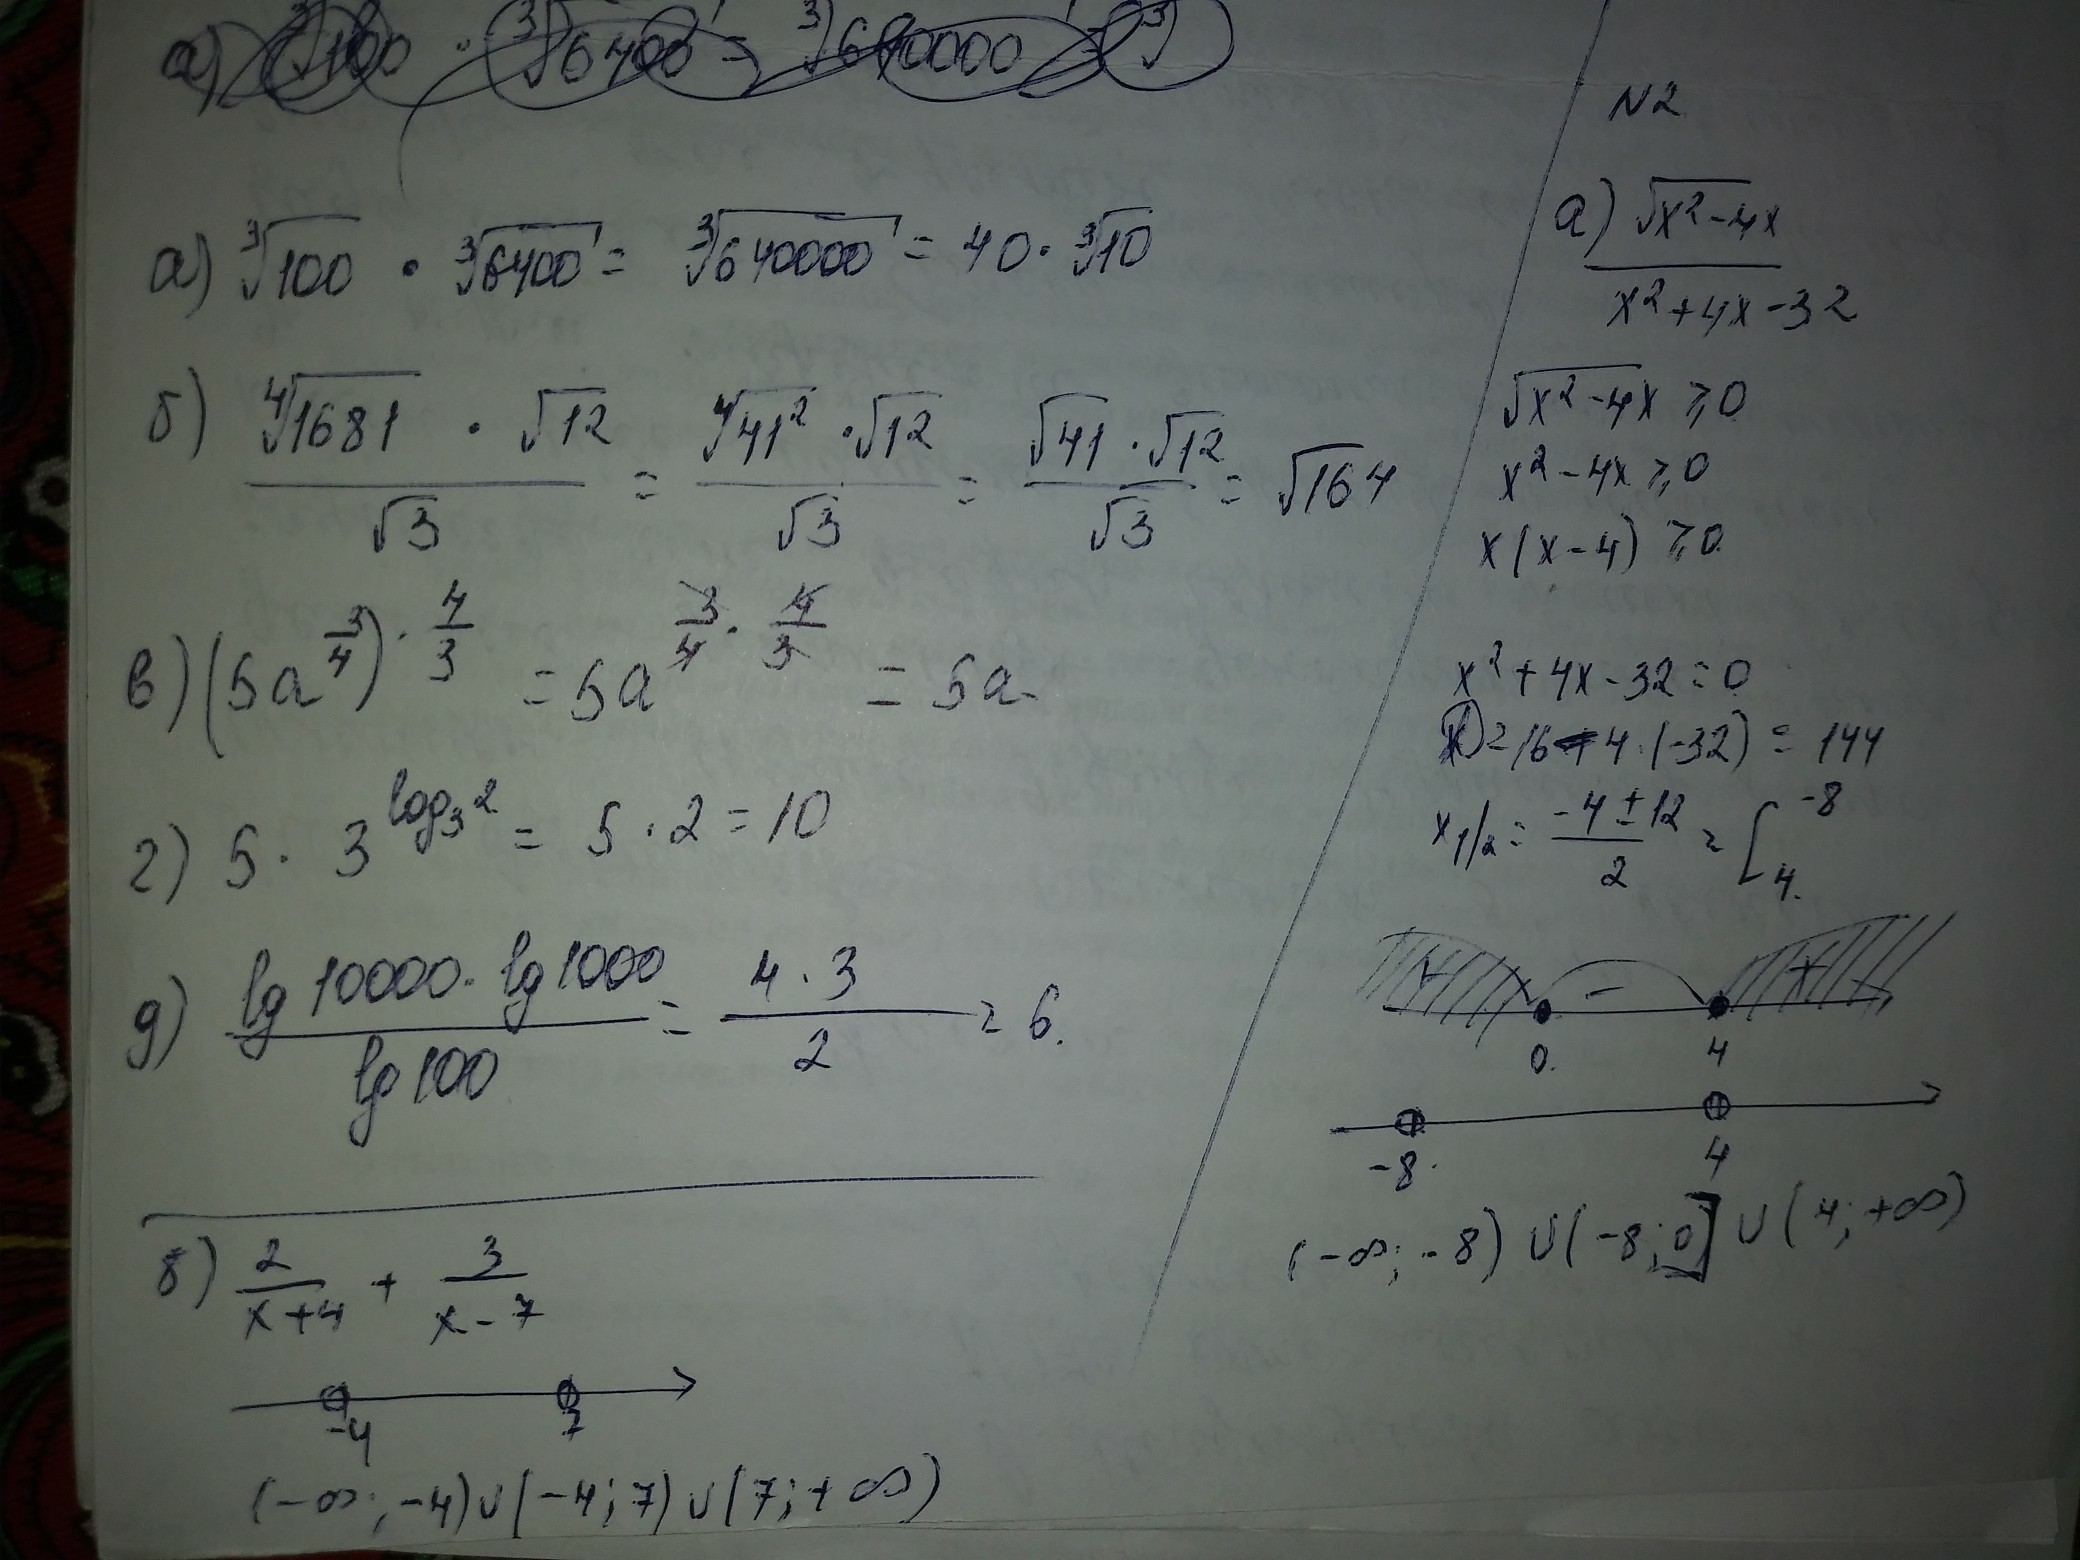 а) ∛100 · ∛6400 = ∛640000 = ∛
а) ∛100 · ∛6400 = ∛640000 = 40 · ∛10
б) (∜1681 · √12)/√3 = (∜41² · √12)/√3 = (√41 · √12)/√3 = √164
в) (5a^(3/4))^(· 4/3) = 5a^(3/4 · 4/3) = 5a.
г) 5 · 3^(log₃2) = 5 · 2 = 10
д) (lg 10000 · lg 1000)/(lg 100) = (4 · 3)/2 = 6.
б) 2/(x+4) + 3/(x-7)
-4 7
(-∞; -4) ∪ (-4; 7) ∪ (7; +∞)
N2
а) √(x²-4x)/(x²+4x-32)
√(x²-4x) ⩾ 0
x² - 4x ⩾ 0
x(x-4) ⩾ 0.
x² + 4x - 32 = 0
D = 16 - 4 · (-32) = 144
x1/2 = (-4 ± 12)/2 = [ -8
4.
+ - +
0. 4
-8. 4
(-∞; -8) ∪ (-8; 0] ∪ (4; +∞)